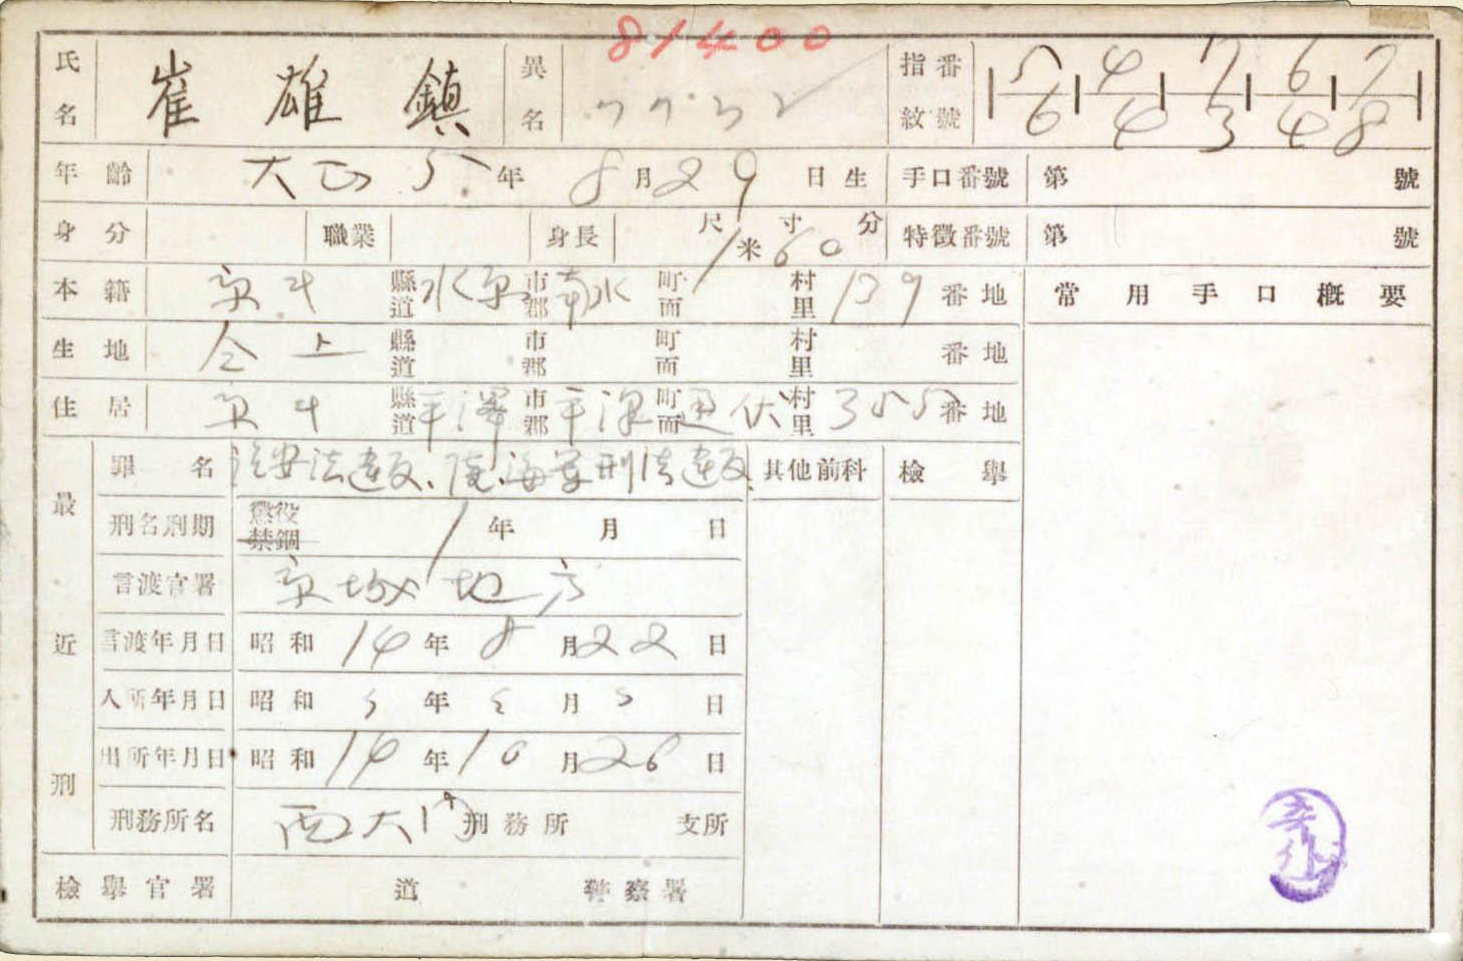 81400
氏名 崔雄鎮 異名 7732 指紋番號 5 4 7 6 7
6 4 3 4 8
年齡 大正5年8月29日生 手口番號 第 號
身分 職業 身長 尺寸分 1米60 特徵番號 第 號
本籍 京 縣道 水原 市郡 南水 町面 村里 139番地 常用手口槪要
生地 仝上 縣道 市郡 町面 村里 番地
住居 京 縣道 平澤 市郡 平澤 町面 通伏 村里 355番地
最近刑
罪名 治安法違反、陸、海軍刑法違反、 其他前科 檢擧
刑名刑期 懲役 禁錮 1年 月 日
言渡官署 京城地方
言渡年月日 昭和14年8月22日
入所年月日 昭和 年 月 日
出所年月日 昭和14年10月26日
刑務所名 西大門刑務所 支所
檢擧官署 道 警察署